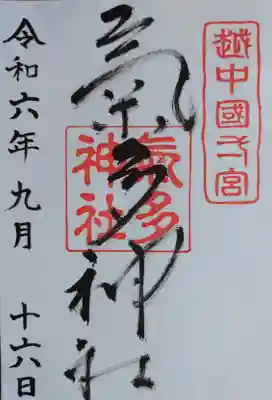 越中國一宮
氣多神社
氣多神社
令和六年九月十六日